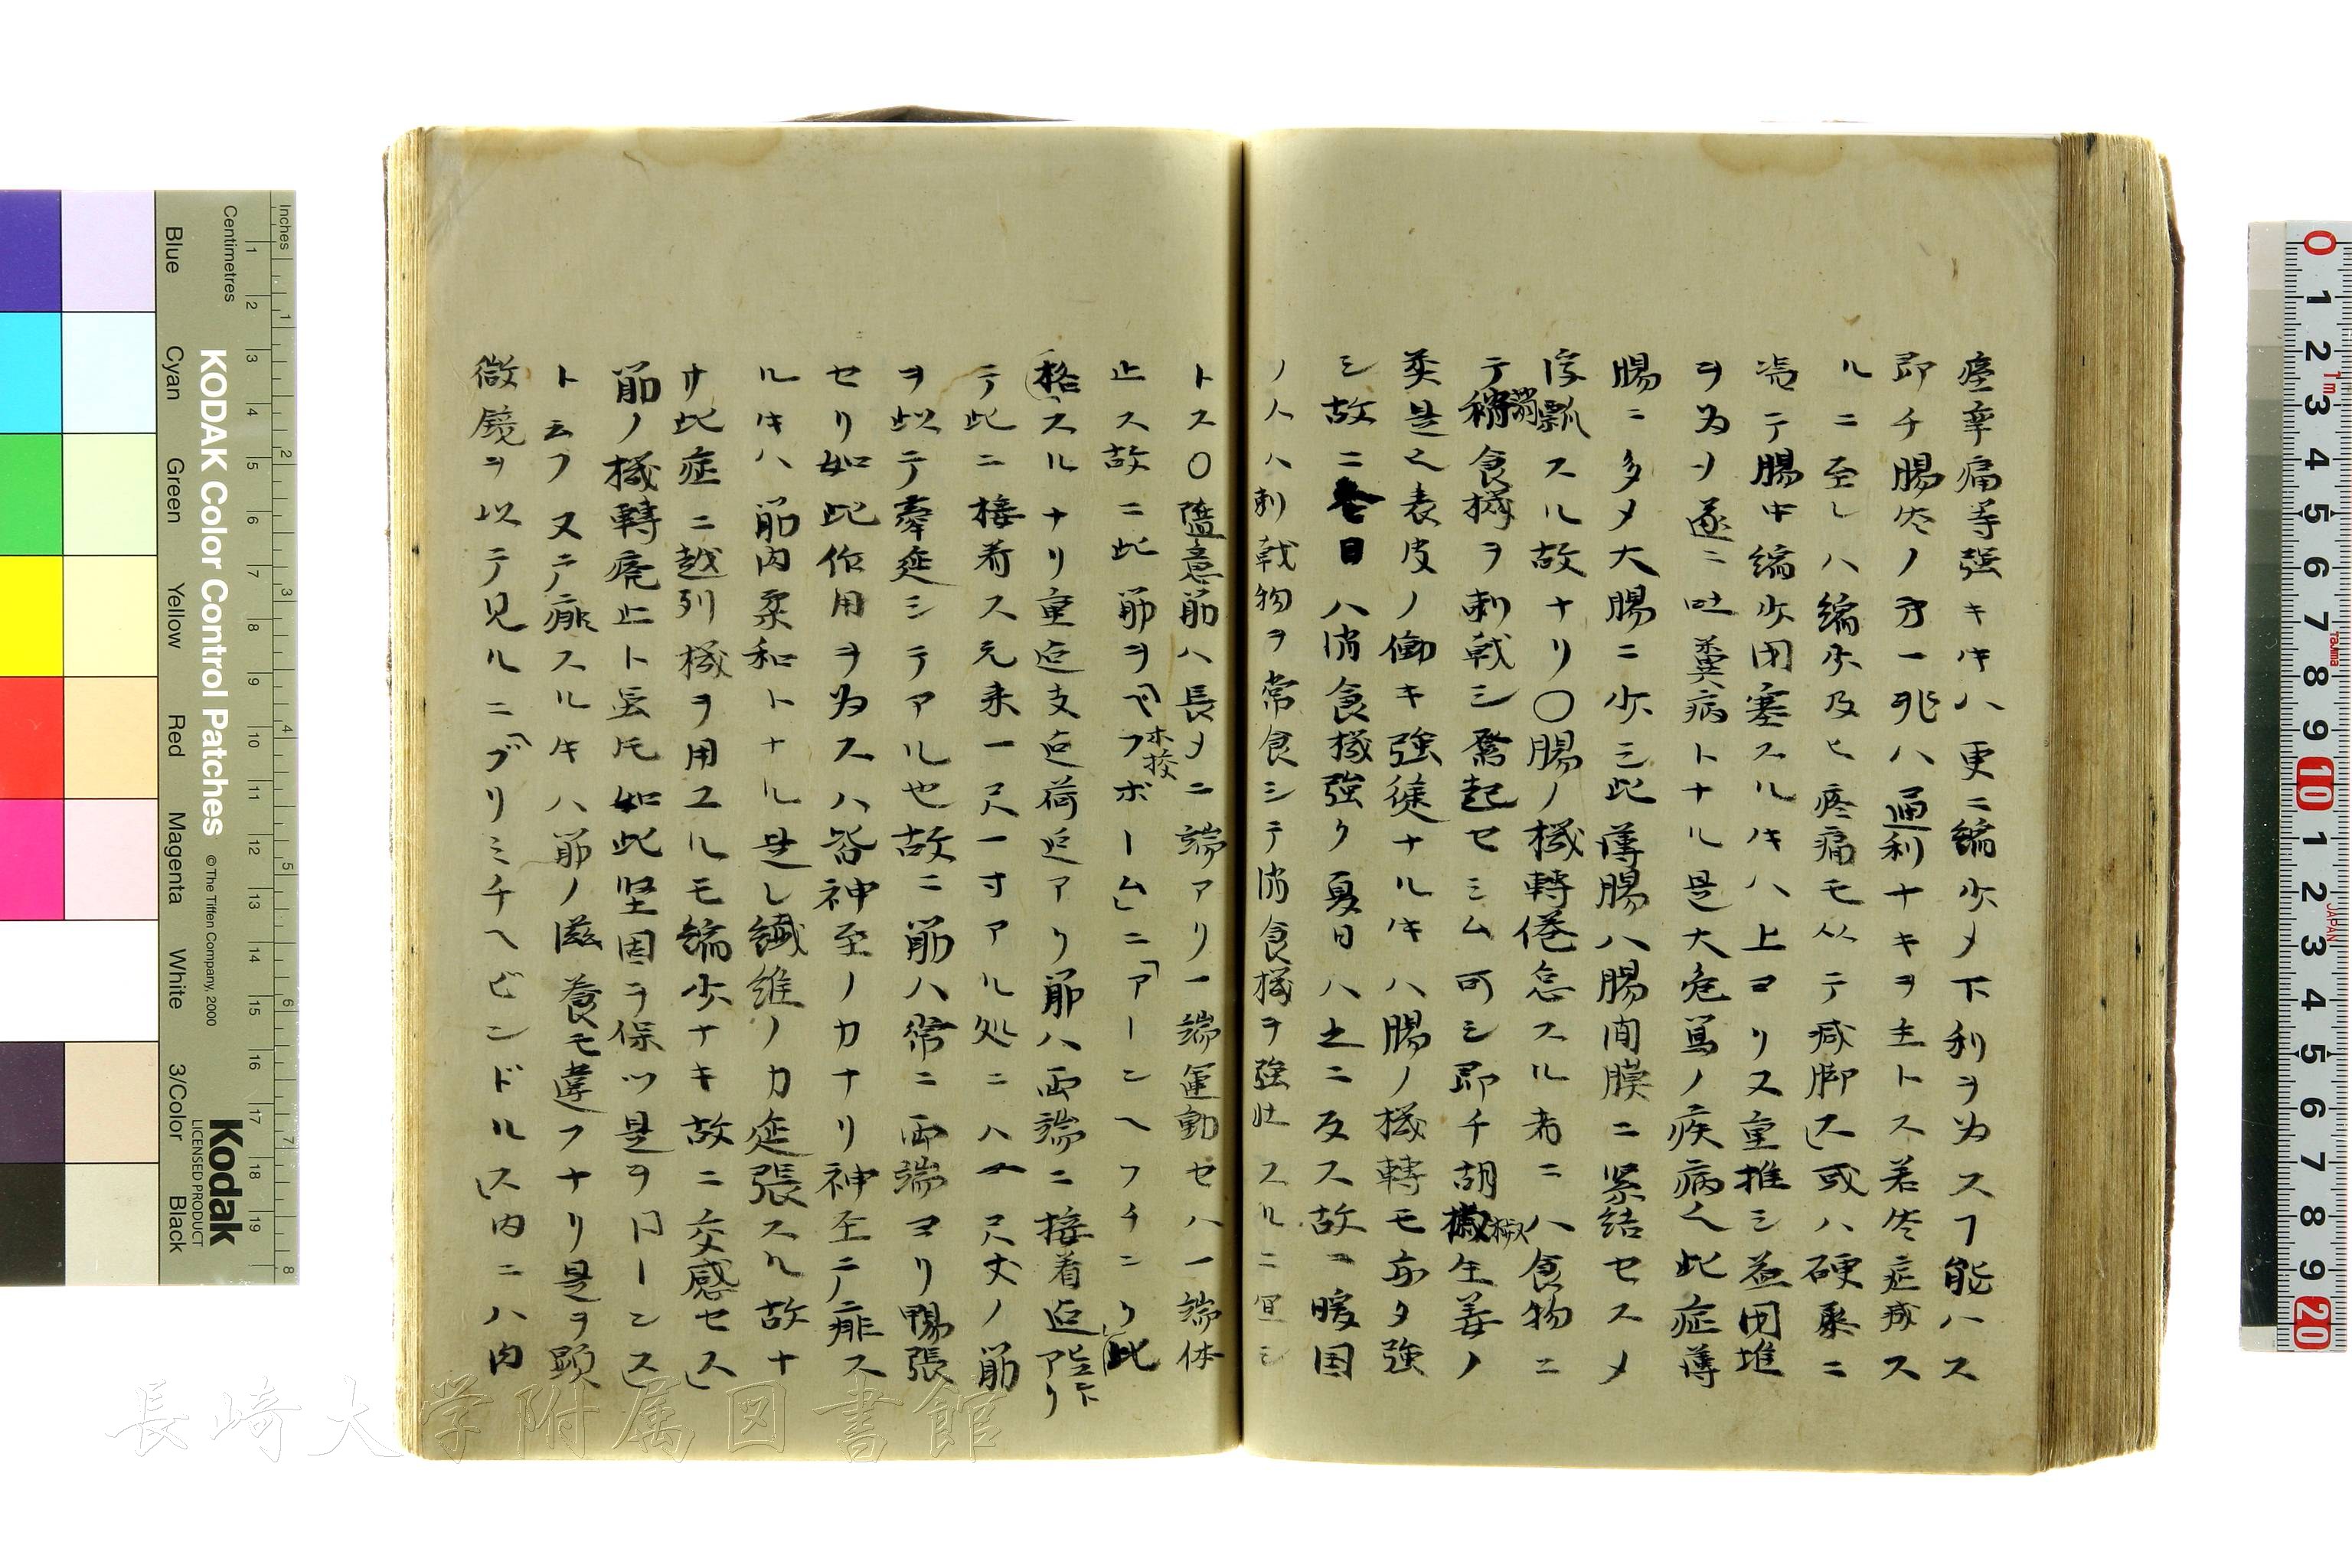 痙攣痛等強キキハ更ニ縮少メ下利ヲ為スフ能ハス
即チ腸ノ一兆ハ通利ナキヲ主トス若症減ス
ルニ至レハ縮少及ヒ疼痛モ从テ減脚ス或ハ硬ニ
テ腸中縮少閉塞スルキハ上ヨリ又重推シ益閉堆
ヲ為ソ遂ニ吐糞病トナル是大危篤ノ疾病也此症薄
腸ニ多メ大腸ニ少シ此薄腸ハ腸間膜ニ緊結セスメ
浮瓢スル故ナリ〇腸ノ機轉倦怠スル者ニハ食物ニ
テ消食機ヲ刺戟シ奮起セシム可シ即チ胡椒生姜ノ
是之表皮ノ働キ強キナルキハ腸ノ機轉モ亦タ強
シ故ニ冬日ハ消食機強ク夏日ハ之ニ反ス故ニ暖国
ノ人ハ刺戟物ヲ常食シテ消食機ヲ強壮スルニ宜シ
トス〇隨意筋ハ長メニ端アリ一端運動セハ一端体
止ス故ニ此筋ヲ「ヘフボーム」ニ「アーンヘフチンリ此
木挍
格スルナリ重点支点荷点アリ筋ハ両端ニ接着点アリ
テ此ニ接着ス元来一尺一寸アル処ニハ一尺丈ノ筋
ヲ以テ牽延シテアル也故ニ筋ハ常ニ両端ヨリ暢張
セリ如此作用ヲ為スハ皆神至ノカナリ神至ニ痱ス
ルキハ筋内柔和トナル是レ繊維ノ力延張スル故ナ
リ此症ニ越列機ヲ用ユルモ縮少ナキ故ニ交感セス
筋ノ機轉廃止ト云圧如此堅固ヲ保ツ是ヲトーンス
ト云フ又痱スルキハ筋ノ滋養モ違フナリ是ヲ顕
微鏡ヲ以テ見ルニ「ブリミチヘビンドルス内ニハ内
長崎大学附属図書館
Inches
Centimetres
KODAK Color Control Patches
© The Tiffen Company, 2000
Kodak
LICENSED PRODUCT
Blue
Cyan
Green
Yellow
Red
Magenta
White
3/Color
Black
1m
Tajima
JAPAN